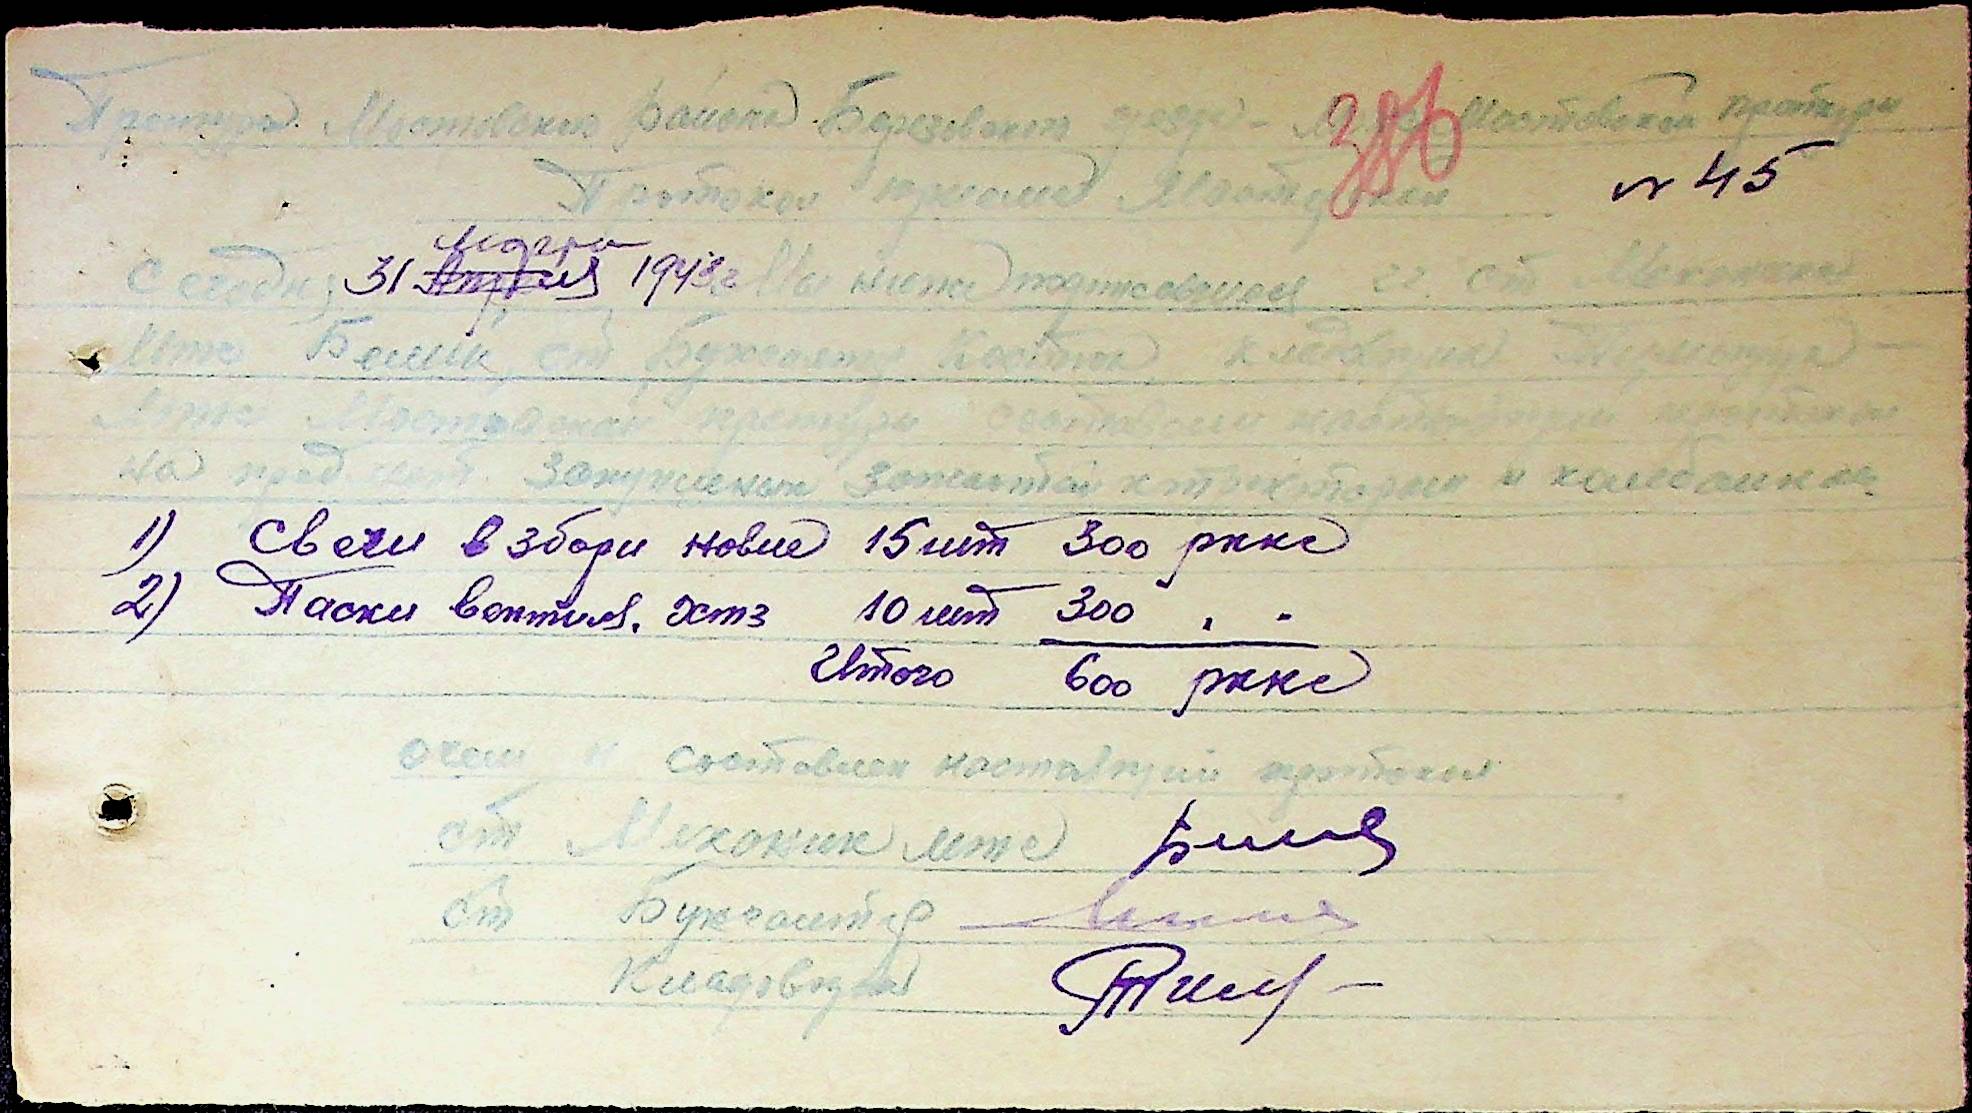 Претура Мостовского района Березовского уезда - Мтс Мостовской претури
386
Протокол приома Мостовской
№ 45
Марта
Сегодня 31 Апреля 1943г Мы ниже подписавшиеся г.г. ст Механика
Мтс Белик, ст Бухгалтер Костюк, кладовщик
Мтс Мостовской претури составили настоящий протокол
на предмет закупленых запчастей к тракторам и комбайнам
1) Свечи в зборі новые 15 шт 300 рккс
2) Паски вентиля. Хтз 10 шт 300 " "
Итого 600 рккс
о чем и составлен настоящий протокол
ст Механик мтс
ст Бухгалтер
Кладовщик